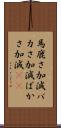 馬鹿さ加減バ
カさ加減ばか
さ加減